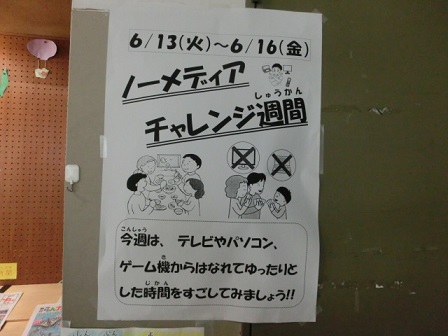 6/13(火)～6/16(金)
ノーメディア
チャレンジ週間
しゅうかん
こんしゅう
今週は、テレビやパソコン、
き
ゲーム機からはなれてゆったりと
じかん
した時間をすごしてみましょう!!